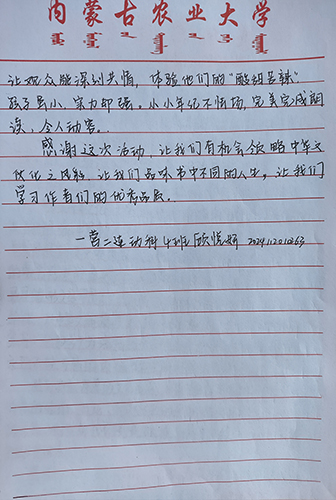 内蒙古农业大学
让观众能深刻共情,体验他们的“酸甜苦辣”
孩子虽小,实力却强。从小年纪不怯场,完美完成朗
读,令人动容。
感谢这次活动,让我们有机会领略中华文
化之风韵,让我们品味书中不同的人生,让我们
学习作者们的优秀品质。
一营二连动科4班 顾悦妍